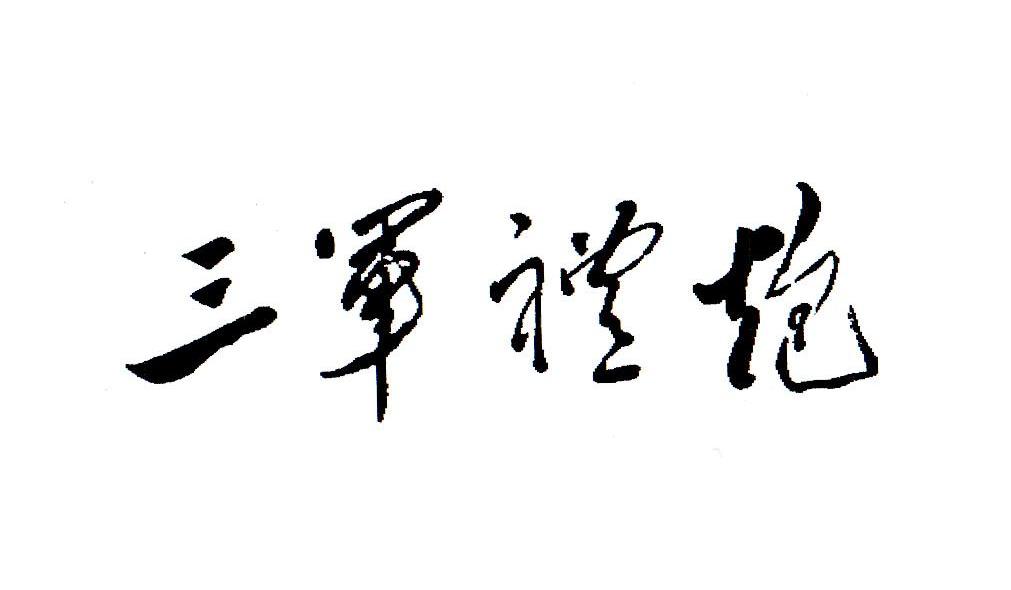 三軍禮炮